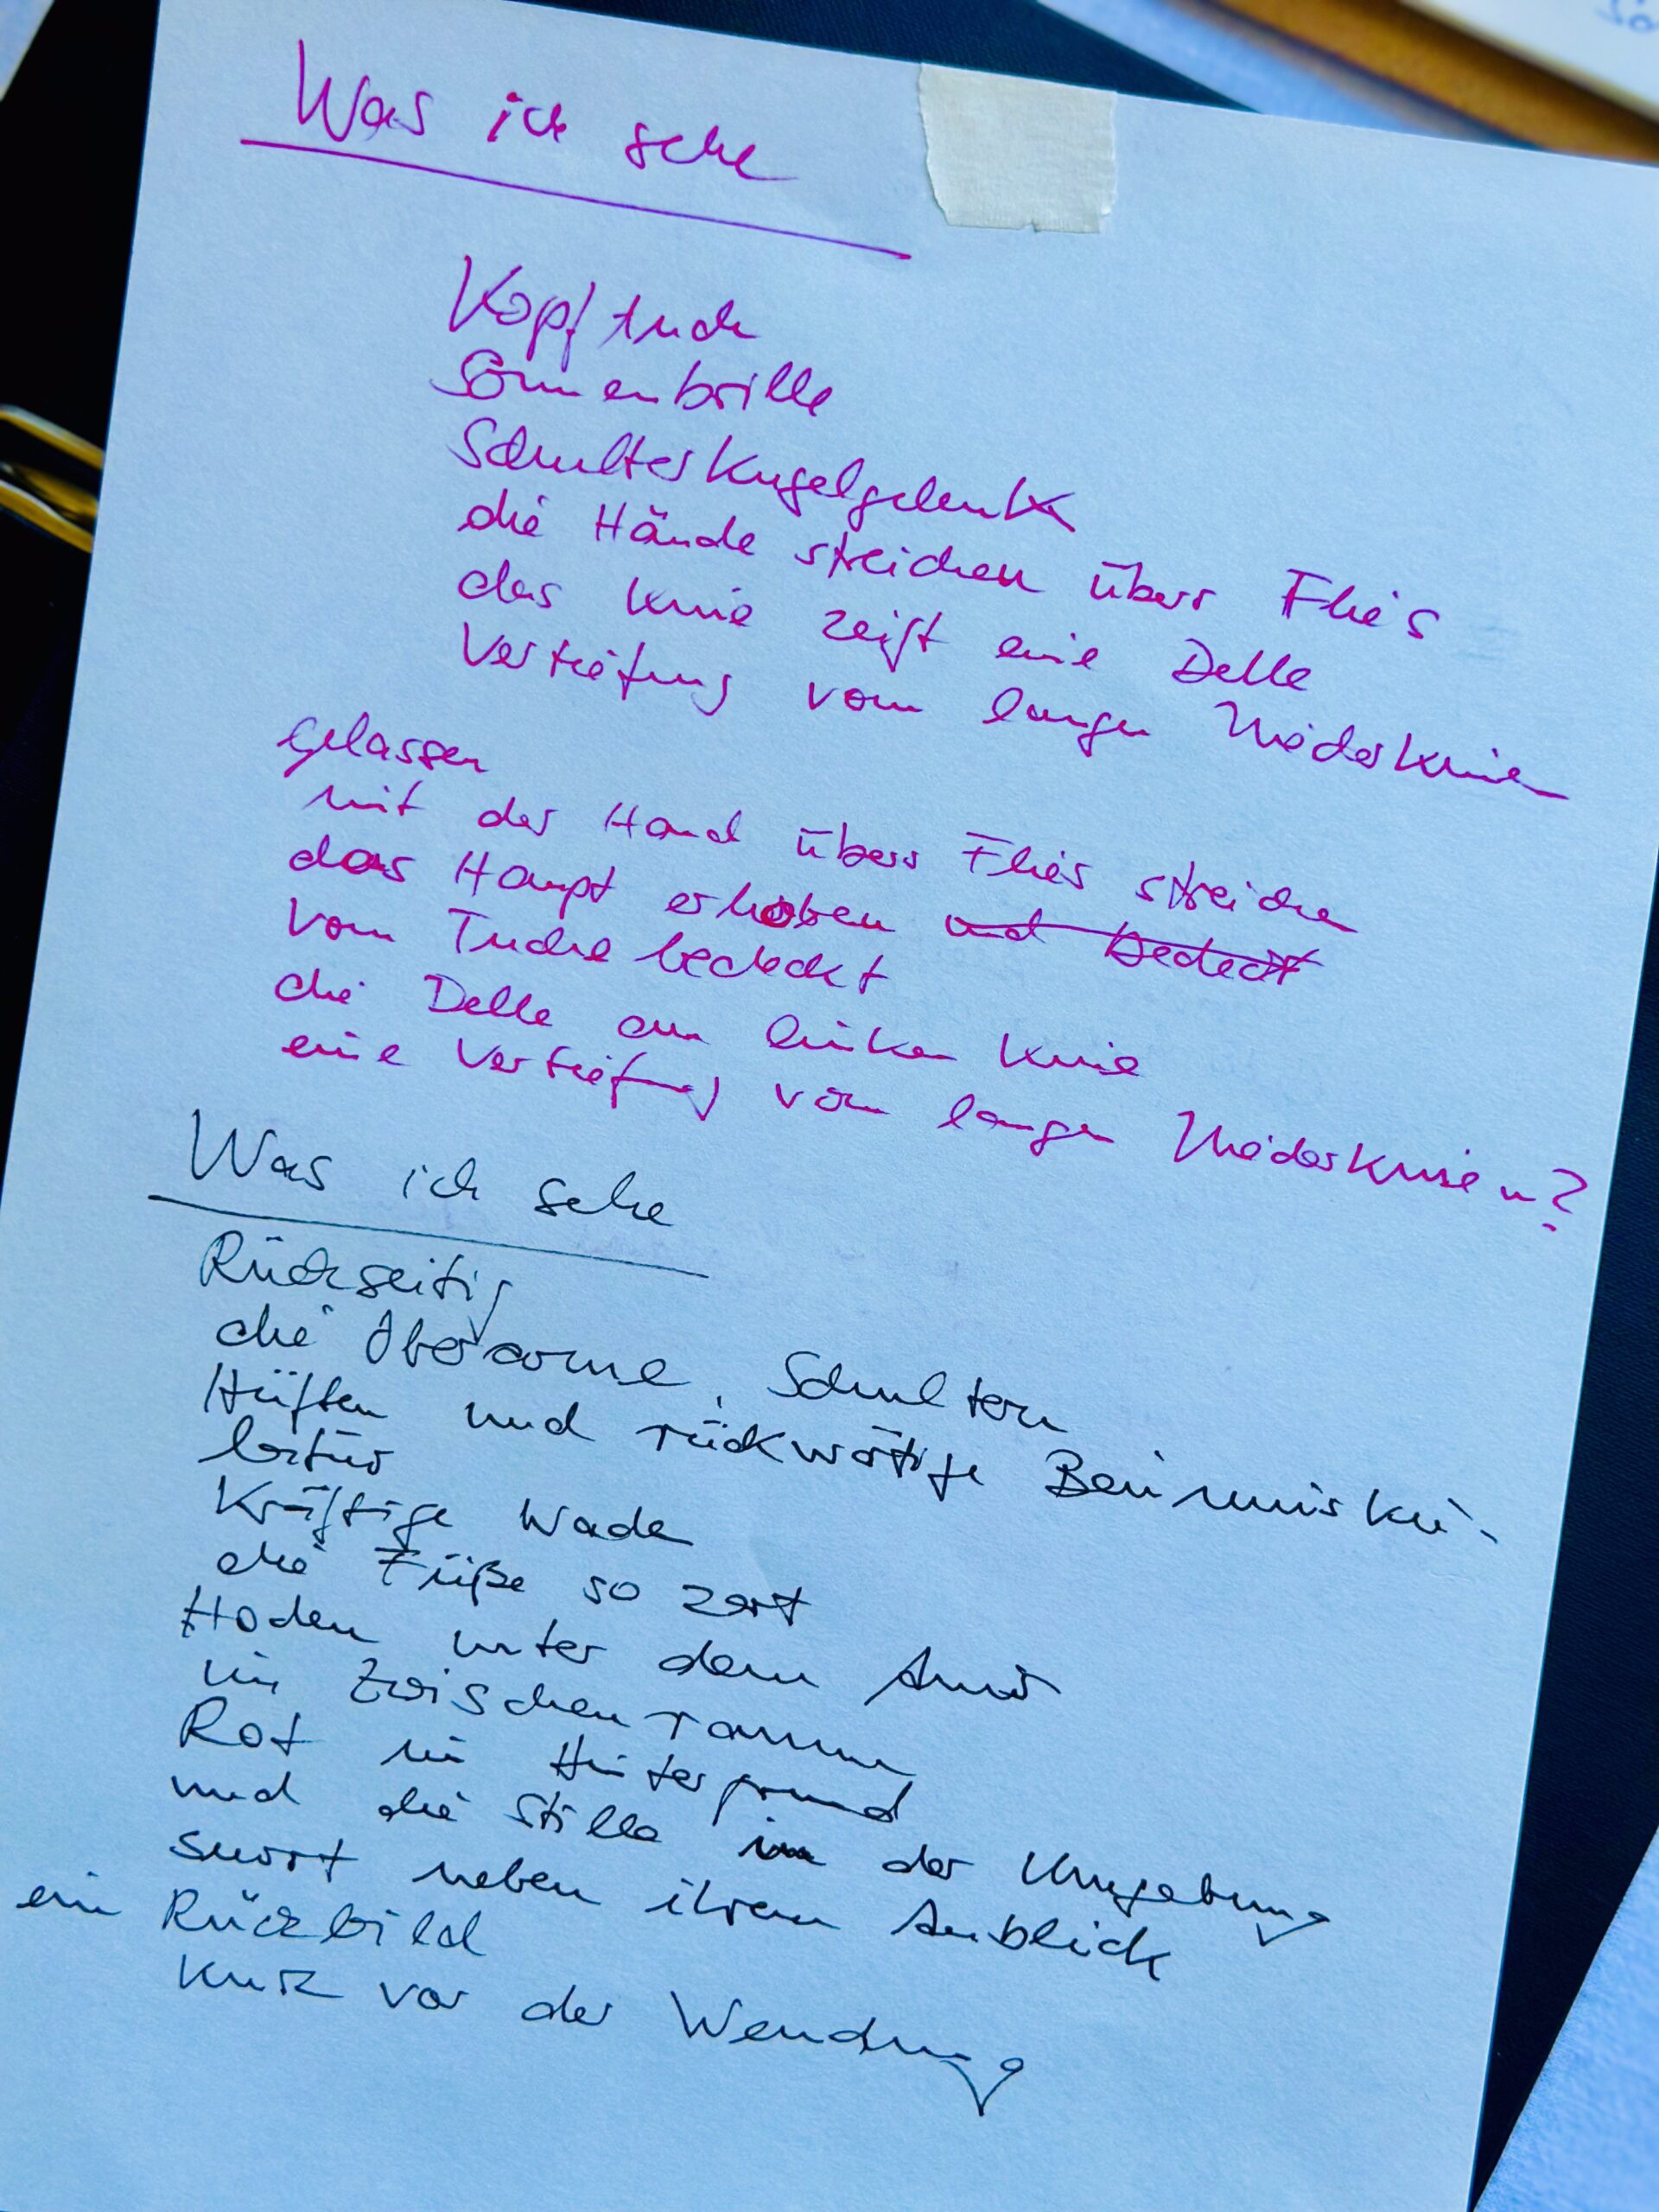 Was ich sehe
Kopftuch
Sonnenbrille
Schulterkugelgelenk
die Hände streichen übers Flies
das Knie zeigt eine Delle
Vertiefung vom langen Niederknien
gelassen
mit der Hand übers Flies streichen
das Haupt erhoben und bedeckt
vom Tuche bedeckt
die Delle am linken Knie
eine Vertiefung vom langen Niederknien?
Was ich sehe
Rückseitig
die Oberarme, Schultern
Hüften und rückwärtige Beinmusku-
latur
Kräftige Waden
die Füße so zart
Hoden unter dem Anus
im Zwischenraum
Rot im Hintergrund
und die Stille in der Umgebung
surrt neben ihrem Anblick
ein Rückbild
kurz vor der Wendung